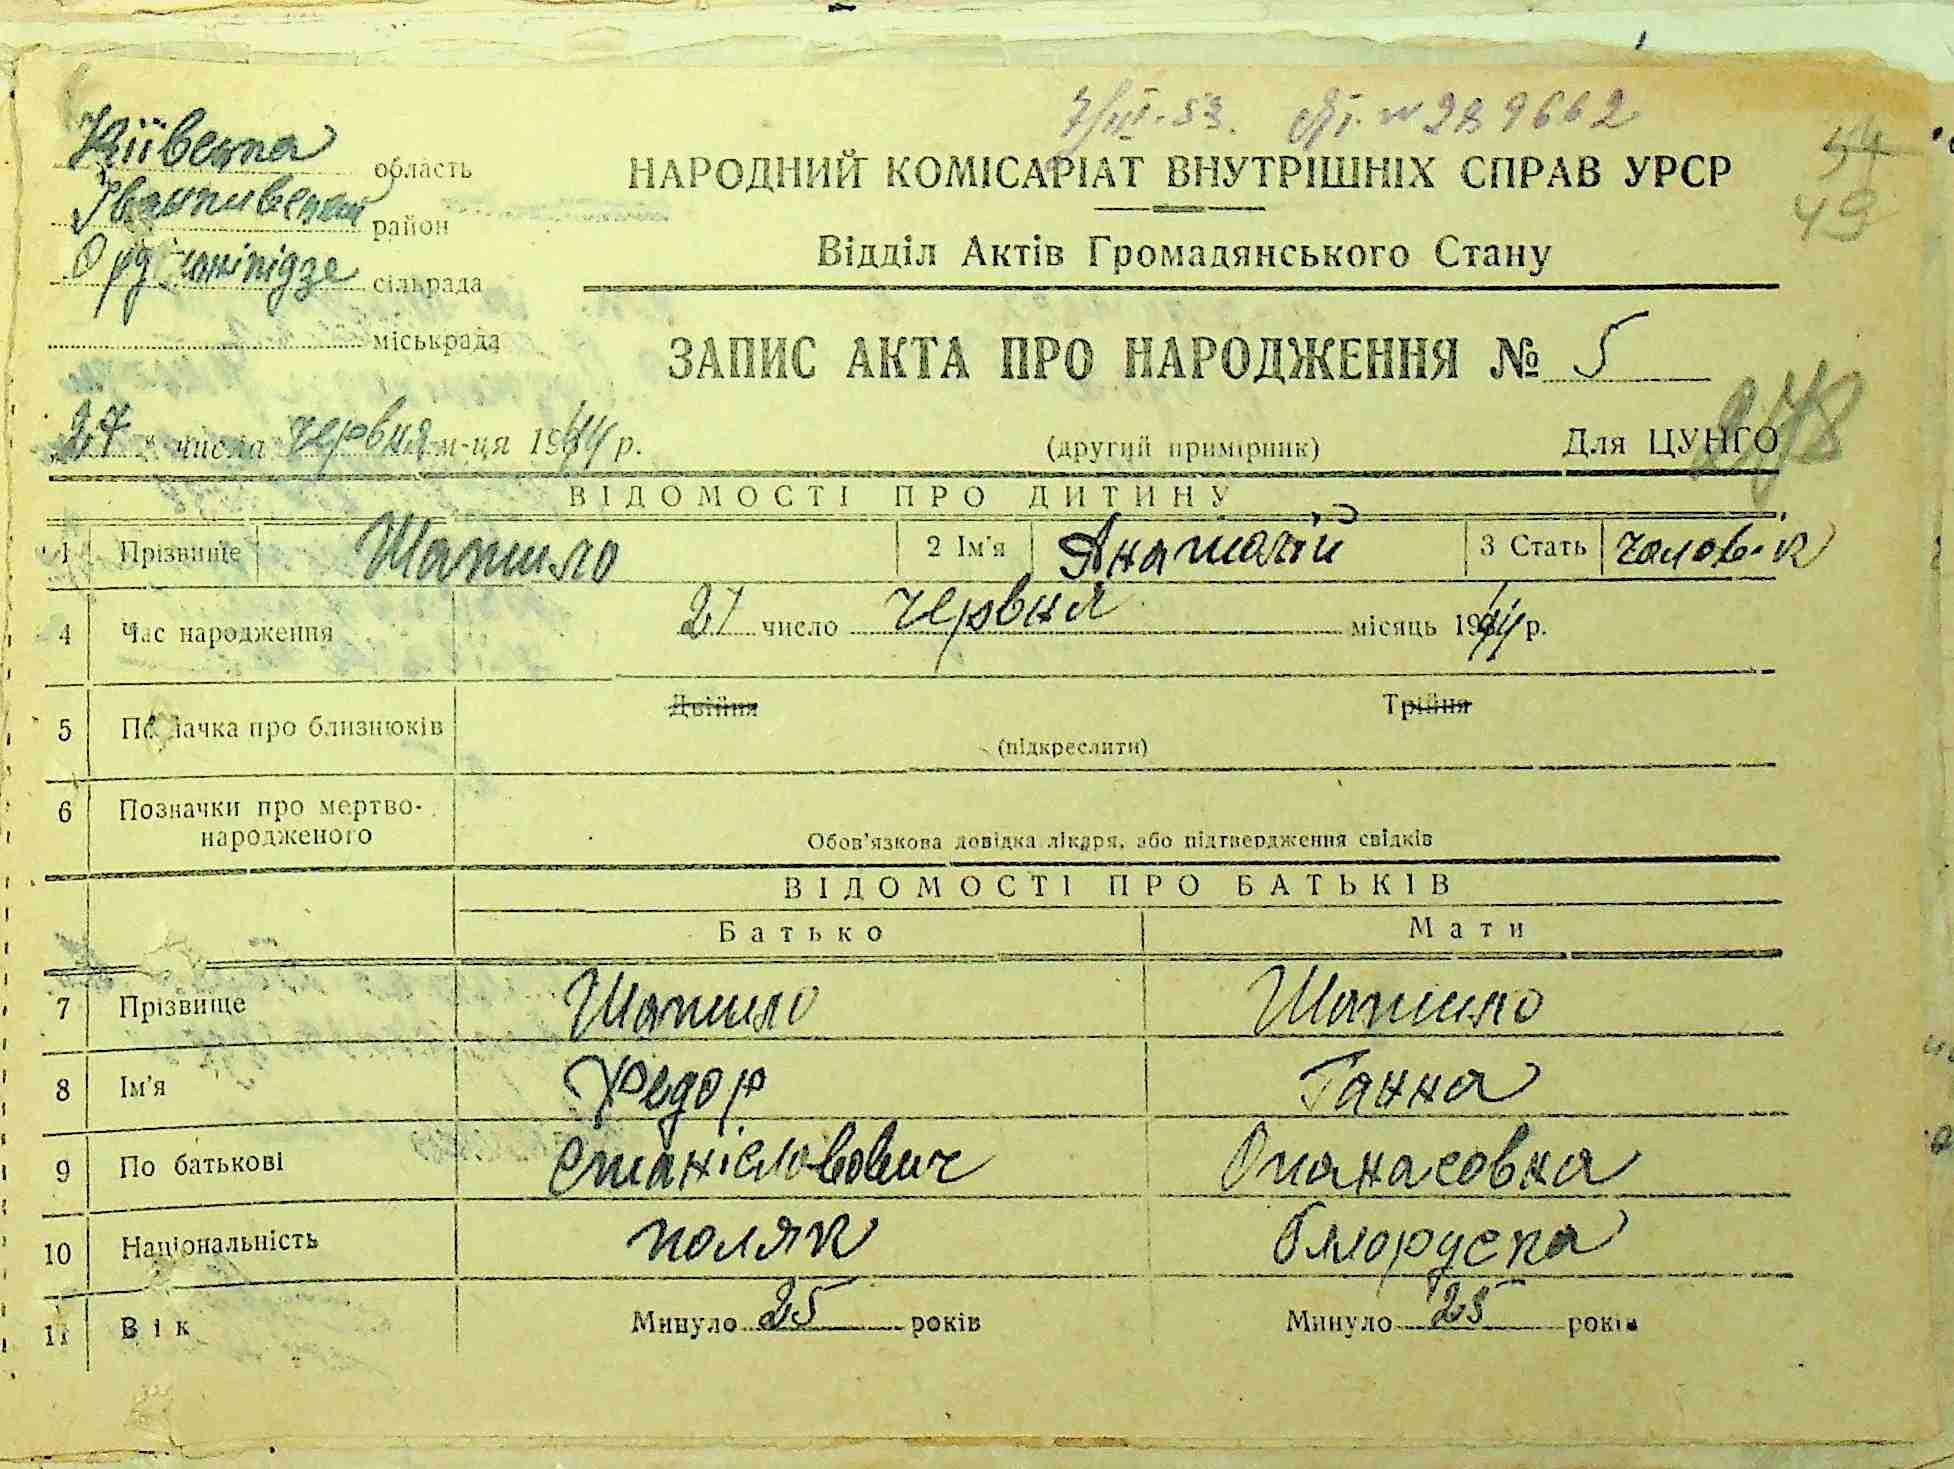 7/III-53. № 289662
Київска область
Іванківский район
Орджонікідзе сільрада
міськрада
54
49
НАРОДНИЙ КОМІСАРІАТ ВНУТРІШНІХ СПРАВ УРСР
Відділ Актів Громадянського Стану
ЗАПИС АКТА ПРО НАРОДЖЕННЯ № 5
278
27 числа червня м-ця 1944 р. (другий примірник) Для ЦУНГО
ВІДОМОСТІ ПРО ДИТИНУ
1 Прізвище Шапило 2 Ім'я Анатолій 3 Стать чолов-к
4 Час народження 21 число червня місяць 1944 р.
Двійня Трійня
5 Позначка про близнюків
(підкреслити)
6 Позначки про мертво-
народженого
Обов'язкова довідка лікаря, або підтвердження свідків
ВІДОМОСТІ ПРО БАТЬКІВ
Батько Мати
7 Прізвище Шапило Шапило
8 Ім'я Федор Ганна
9 По батькові Станіславович Опанасовна
10 Національність поляк білоруска
11 Вік Минуло 25 років Минуло 25 років